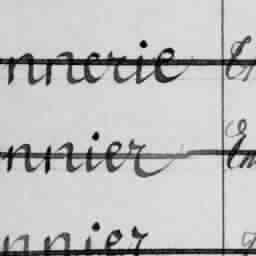 nnerie
nnier En
nnier